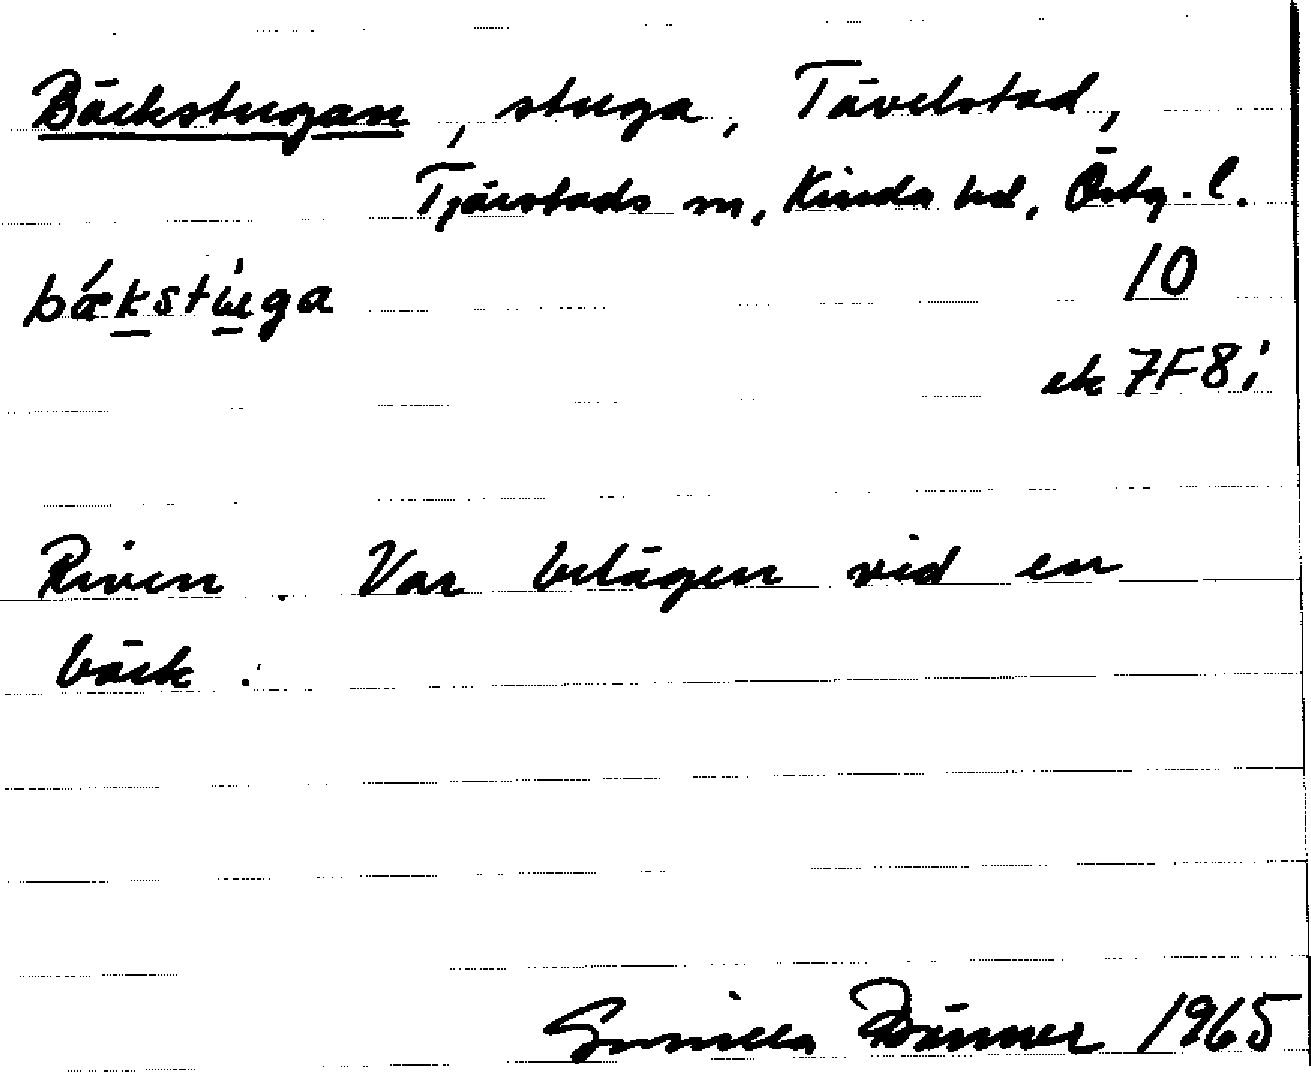 Bäckstugan, stuga, Tävelstad,
Tjärstads sn, Kinda hd, Östg. l.
bǽkstùga
10
ek 7F8i
Riven. Var belägen vid en
bäck.
Gunilla 1965